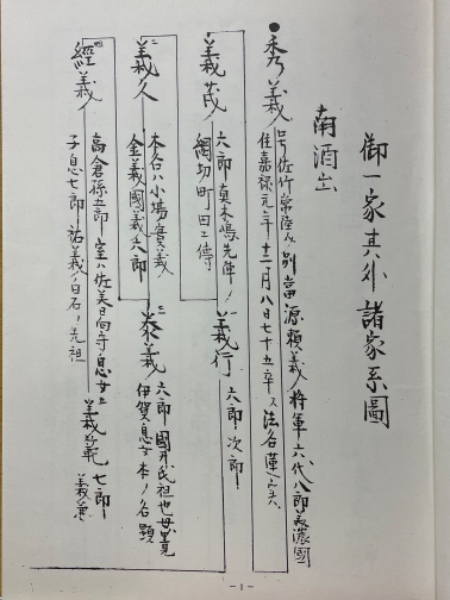 御一家其外諸家系圖
南酒出
秀義
号佐竹常陸介別當源頼義将軍六代八郎美濃國
住嘉禄元年十二月八日七十五卒ス法名蓮
義茂
六郎真木嶋先陣ノ
綱切町田ニ傳
義行
六郎次郎
二
義久
本名八小場實義ノ
金義國義兵郎
二
泰義
六郎國井氏祖也母里見
伊賀息女本ノ名顕
四
經義
高倉孫五郎室ハ佐美日向守息女ニ
子息七郎祐義ノ白石ノ先祖
義範
七郎
義兼
-1-